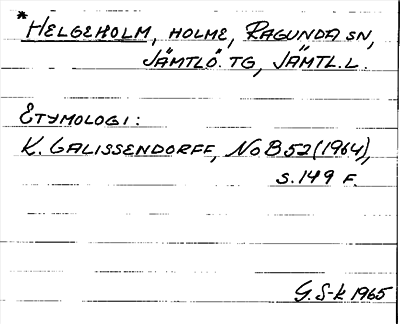 *HELGEHOLM, HOLME, RAGUNDA SN,
JÄMTLÖ. TG, JÄMTL. L.
ETYMOLOGI:
K. GALISSENDORFF, NoB 52 (1964),
S. 149 F.
G. S-k 1965